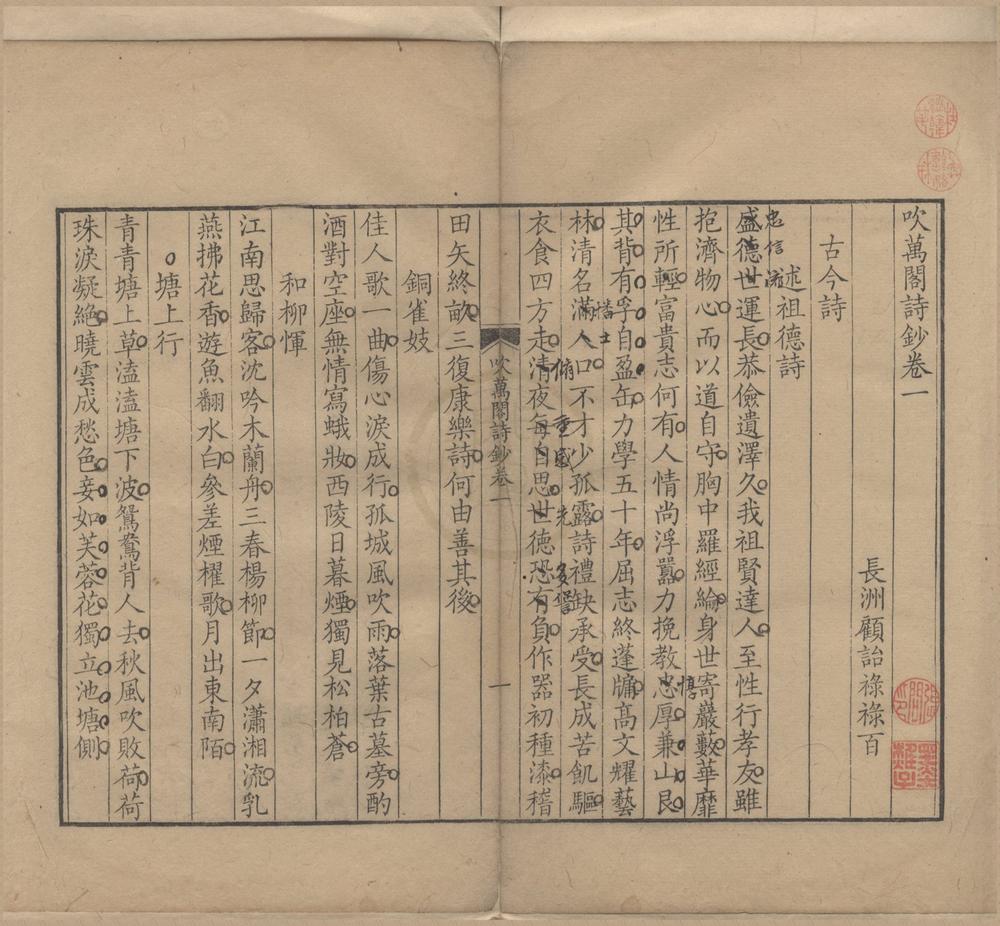 吹萬閣詩鈔卷一
長洲顧詒祿祿百
古今詩
述祖德詩
忠信流
盛德世運長恭儉遺澤久我祖賢達人至性行孝友雖
抱濟物心而以道自守胸中羅經綸身世寄巖藪華靡
性所輕富貴志何有人情尚浮囂力挽教忠厚兼山艮
惇
其背有孚自盈缶力學五十年屈志終蓬牖高文耀藝
林清名滿人口不才少孤露詩禮缺承受長成苦飢驅
搢士
衣食四方走清夜每自思世德恐有負作器初種漆稽
俯
重感
先
多
吹萬閣詩鈔卷一
一
田矢終畝三復康樂詩何由善其後
銅雀妓
佳人歌一曲傷心淚成行孤城風吹雨落葉古墓旁酌
酒對空座無情寫蛾妝西陵日暮煙獨見松柏蒼
和柳惲
江南思歸客沈吟木蘭舟三春楊柳節一夕瀟湘流乳
燕拂花香遊魚翻水白參差煙櫂歌月出東南陌
塘上行
青青塘上草溘溘塘下波鴛鴦背人去秋風吹敗荷荷
珠淚凝絶曉雲成愁色妾如芙蓉花獨立池塘側